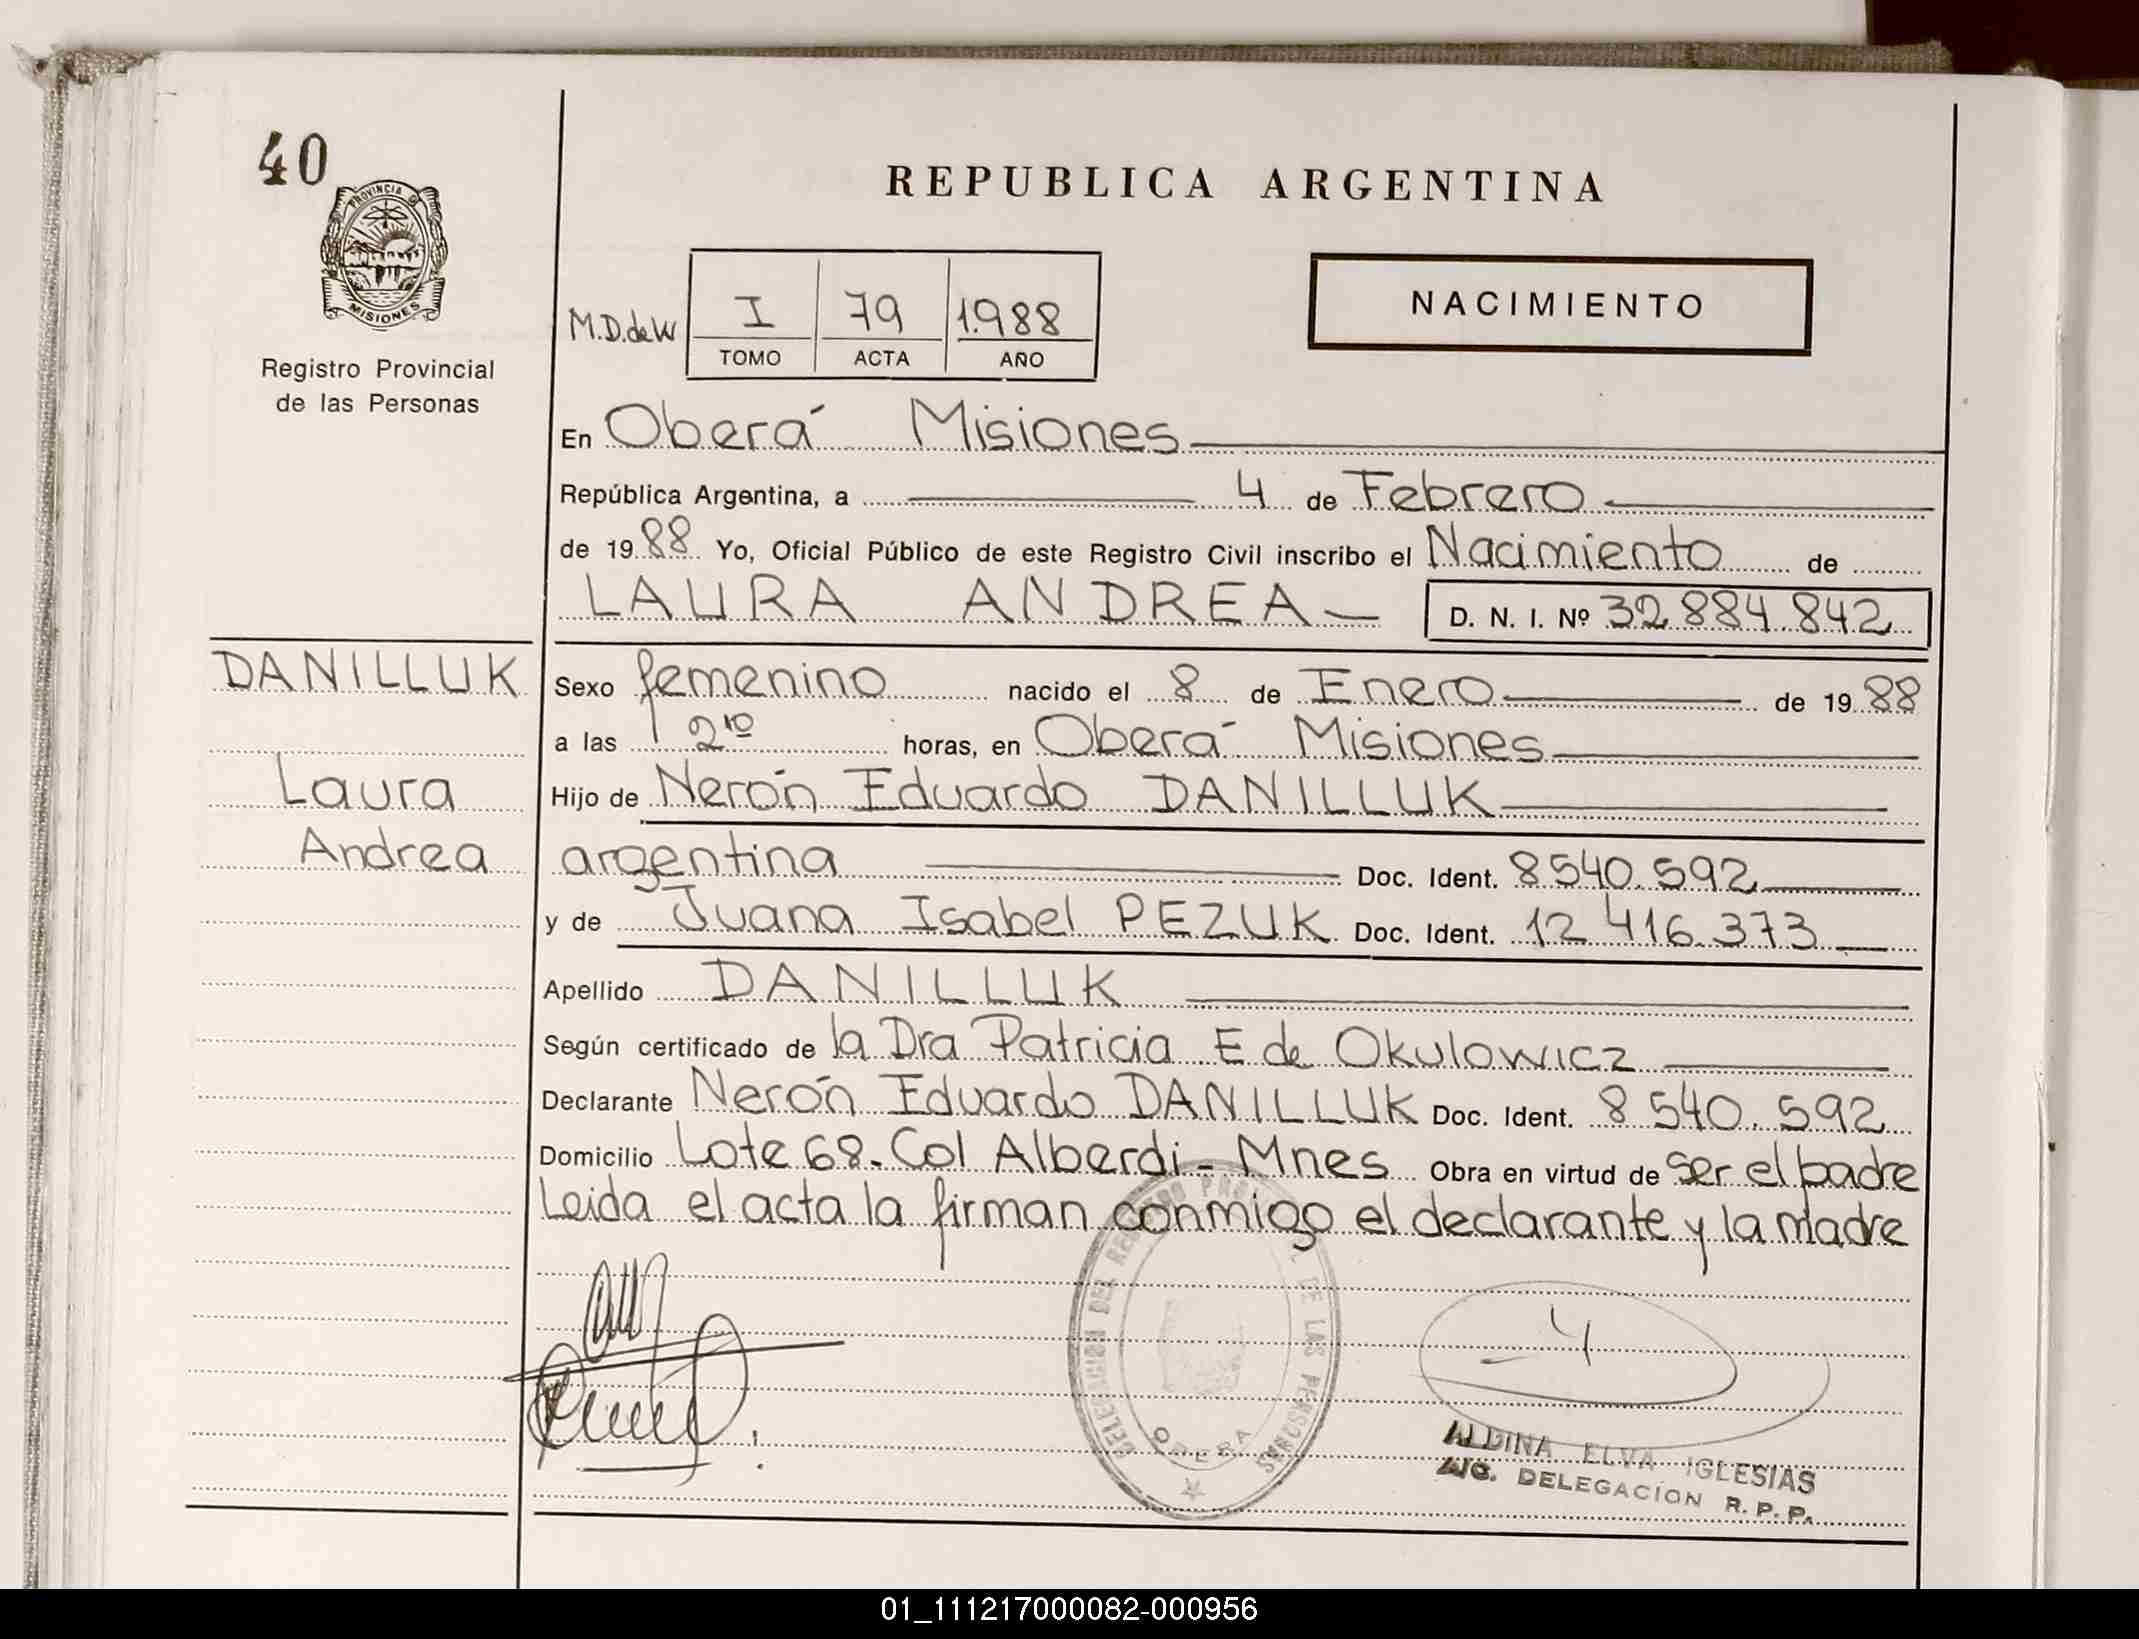 40
PROVINCIA D
MISIONES
Registro Provincial
de las Personas
REPUBLICA ARGENTINA
M.D.deW I 79 1.988
TOMO ACTA AÑO
NACIMIENTO
En Oberá Misiones
República Argentina, a 4 de Febrero
de 1988 Yo, Oficial Público de este Registro Civil inscribo el Nacimiento de
LAURA ANDREA D. N. I. Nº 32.884.842
DANILLUK
Laura
Andrea
Sexo femenino nacido el 8 de Enero de 1988
a las 2 10 horas, en Oberá Misiones
Hijo de Nerón Eduardo DANILLUK
argentina Doc. Ident. 8540.592
y de Juana Isabel PEZUK Doc. Ident. 12 416.373
Apellido DANILLUK
Según certificado de la Dra Patricia E de Okulowicz
Declarante Nerón Eduardo DANILLUK Doc. Ident. 8 540.592
Domicilio Lote 68. Col Alberdi - Mnes Obra en virtud de ser el padre
Leida el acta la firman conmigo el declarante y la madre
DELEGACION DEL REGISTRO DE LAS PERSONAS
OBERA
ALDINA ELVA IGLESIAS
DELEGACION R. P. P.
01_111217000082-000956